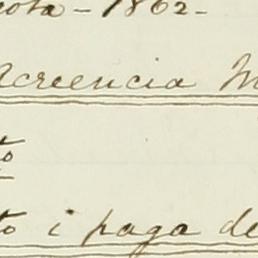 cota - 1862-
Acreencia M
to
to i paga de